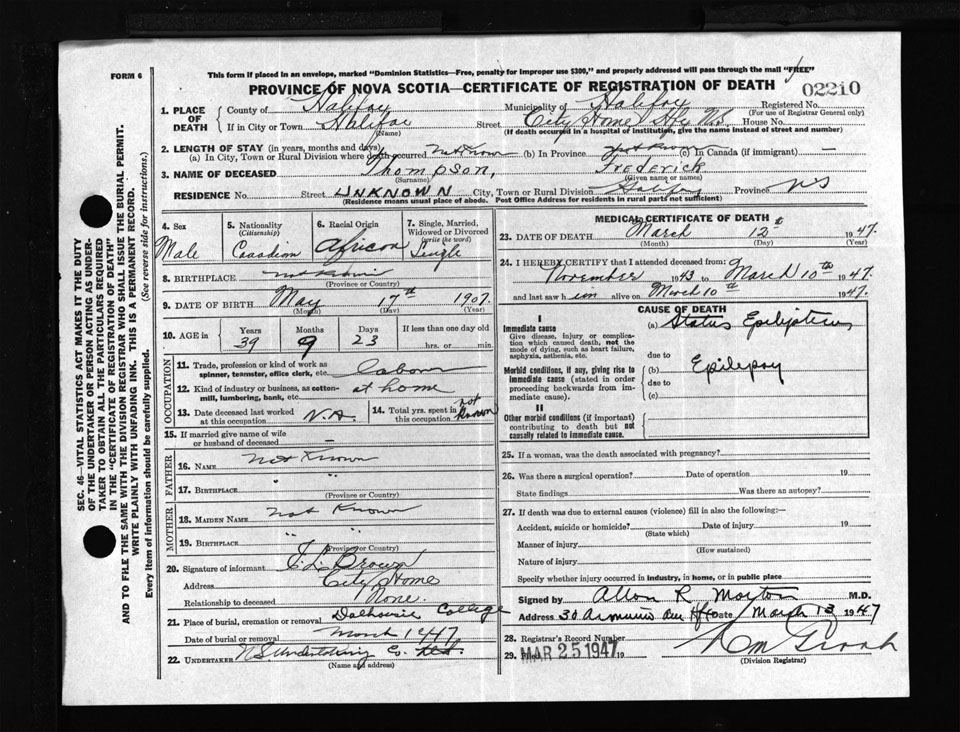 FORM 6
This form if placed in an envelope, marked "Dominion Statistics—Free, penalty for improper use $300," and properly addressed will pass through the mail "FREE"
PROVINCE OF NOVA SCOTIA—CERTIFICATE OF REGISTRATION OF DEATH
02210
1. PLACE OF DEATH
County of Halifax Municipality of Halifax Registered No.
(For use of Registrar General only)
If in City or Town Halifax Street City Home Hfx N.S. House No.
(Name) (If death occurred in a hospital of institution, give name instead of street and number)
2. LENGTH OF STAY (in years, months and days)
(a) In City, Town or Rural Division where death occurred Not Known (b) In Province Not Known (c) In Canada (if immigrant) —
3. NAME OF DECEASED Thompson, Frederick
(Surname) (Given name or names)
RESIDENCE No. Street UNKNOWN City, Town or Rural Division Halifax Province NS
(Residence means usual place of abode. Post Office Address for residents in rural parts not sufficient)
4. Sex
Male
5. Nationality
(Citizenship)
Canadian
6. Racial Origin
African
7. Single, Married, Widowed or Divorced
(write the word)
Single
8. BIRTHPLACE Not Known
(Province or Country)
9. DATE OF BIRTH May 17th 1907
(Month) (Day) (Year)
10. AGE in Years Months Days If less than one day old
39 9 23 hrs. or min.
OCCUPATION
11. Trade, profession or kind of work as spinner, teamster, office clerk, etc. labour
12. Kind of industry or business, as cotton-mill, lumbering, bank, etc. at home
13. Date deceased last worked at this occupation N.A.
14. Total yrs. spent in this occupation not known
15. If married give name of wife or husband of deceased —
FATHER
16. NAME Not Known
17. BIRTHPLACE " "
(Province or Country)
MOTHER
18. MAIDEN NAME Not Known
19. BIRTHPLACE " "
(Province or Country)
20. Signature of informant Brown
Address City Home
Relationship to deceased None.
21. Place of burial, cremation or removal Dalhousie College
Date of burial or removal March
22. UNDERTAKER N.S. Undertaking Co. Ltd.
(Name and address)
MEDICAL CERTIFICATE OF DEATH
23. DATE OF DEATH March 12th 1947.
(Month) (Day) (Year)
24. I HEREBY CERTIFY that I attended deceased from:
November 1943 to March 10th 1947.
and last saw him alive on March 10th 1947.
CAUSE OF DEATH
I
Immediate cause
Give disease, injury or complication which caused death, not the mode of dying, such as heart failure, asphyxia, asthenia, etc.
(a) Status Epilepticus
due to
Morbid conditions, if any, giving rise to immediate cause (stated in order proceeding backwards from immediate cause).
(b) Epilepsy
due to
(c)
II
Other morbid conditions (if important) contributing to death but not causally related to immediate cause.
25. If a woman, was the death associated with pregnancy?
26. Was there a surgical operation? Date of operation 19
State findings Was there an autopsy?
27. If death was due to external causes (violence) fill in also the following:
Accident, suicide or homicide? Date of injury 19
(State which)
Manner of injury
(How sustained)
Nature of injury
Specify whether injury occurred in industry, in home, or in public place
Signed by Allan R. Morton M.D.
Address Ave Hfx Date March 13 1947
28. Registrar's Record Number
29. Filed MAR 25 1947 19
(Division Registrar)
SEC. 46—VITAL STATISTICS ACT MAKES IT THE DUTY
OF THE UNDERTAKER OR PERSON ACTING AS UNDER-
TAKER TO OBTAIN ALL THE PARTICULARS REQUIRED
IN THE "CERTIFICATE OF REGISTRATION OF DEATH"
AND TO FILE THE SAME WITH THE DIVISION REGISTRAR WHO SHALL ISSUE THE BURIAL PERMIT.
WRITE PLAINLY WITH UNFADING INK. THIS IS A PERMANENT RECORD.
Every item of information should be carefully supplied. (See reverse side for instructions.)